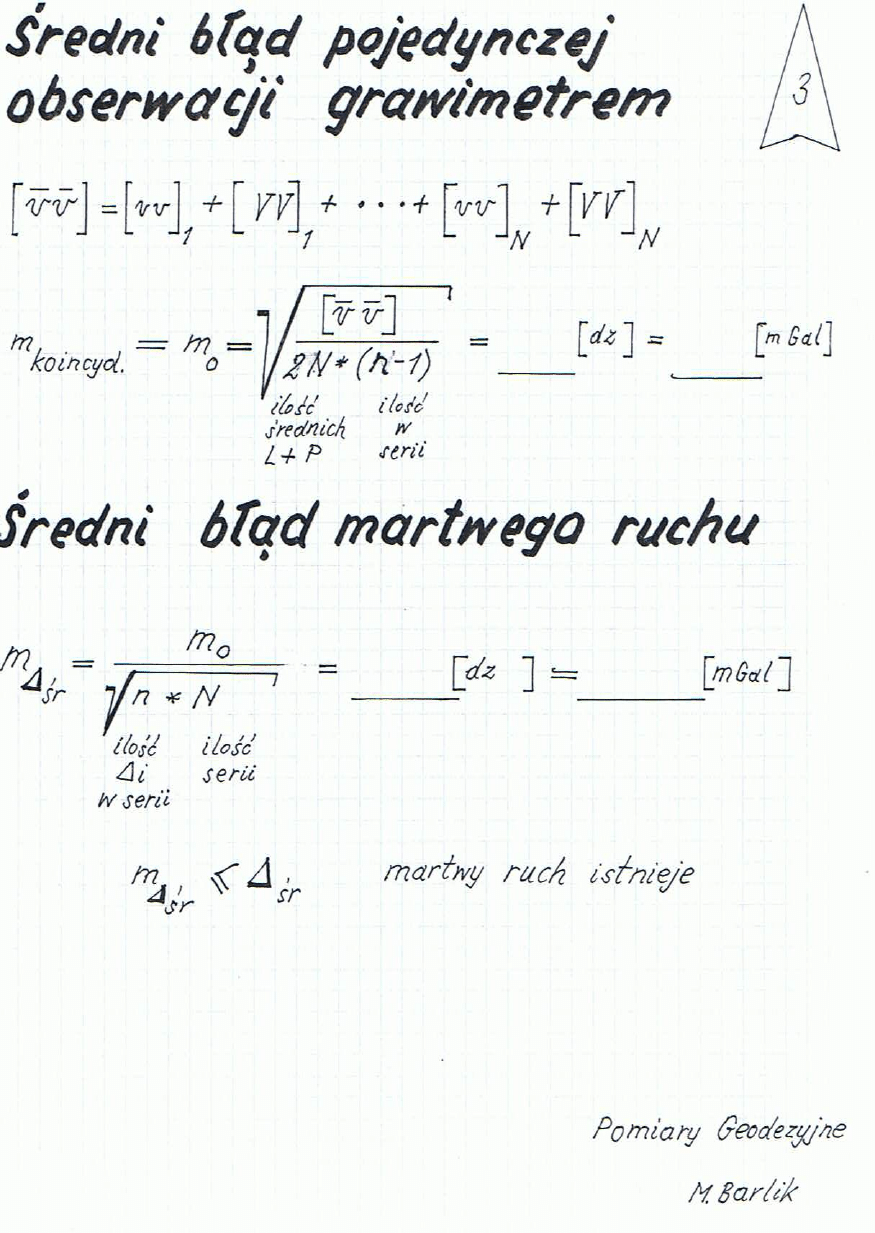 Średni błąd pojedynczej
obserwacji grawimetrem
3
[v̅ v̅] = [vv]₁ + [VV]₁ + ···+ [vv]_N + [VV]_N
m koincyd. = m₀ = √([v̅ v̅] / 2N*(n-1)) = ____ [dz] = ____ [mGal]
ilość ilość
średnich w
L+P serii
Średni błąd martwego ruchu
m_Δśr = m₀ / √(n * N) = ____ [dz ] = ____ [mGal]
ilość ilość
Δi serii
w serii
m_Δśr ⩽ Δśr martwy ruch istnieje
Pomiary Geodezyjne
M. Barlik